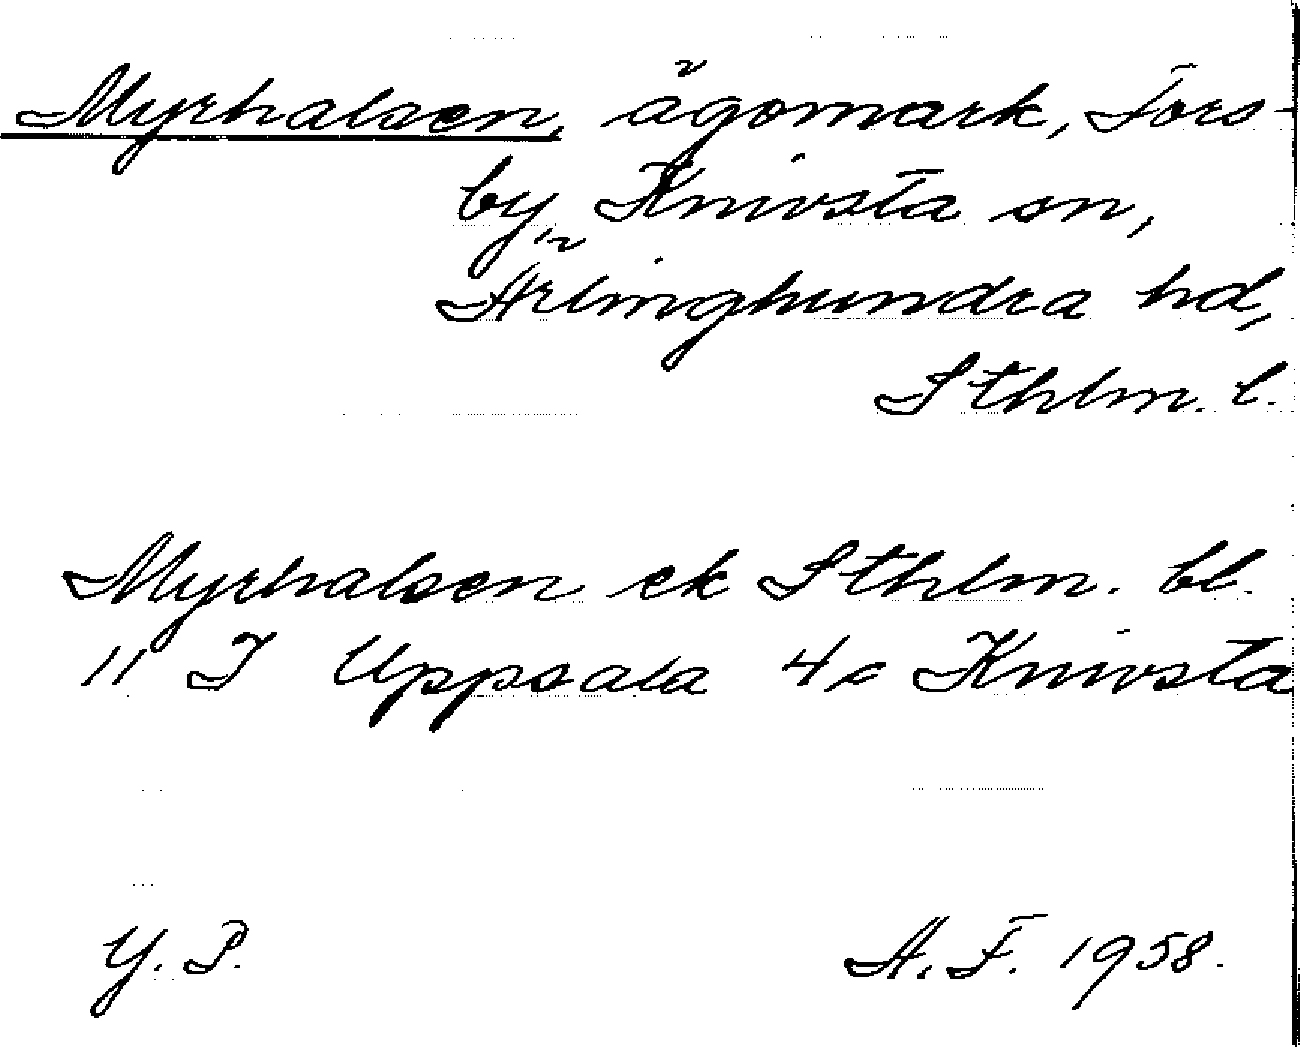 Myrhalsen, ägomark, Tors-
by, Knivsta sn,
Ärlinghundra hd,
Sthlm. l.
Myrhalsen ek Sthlm. bl.
11 I Uppsala 4c Knivsta
Y. P.
A. F. 1958.